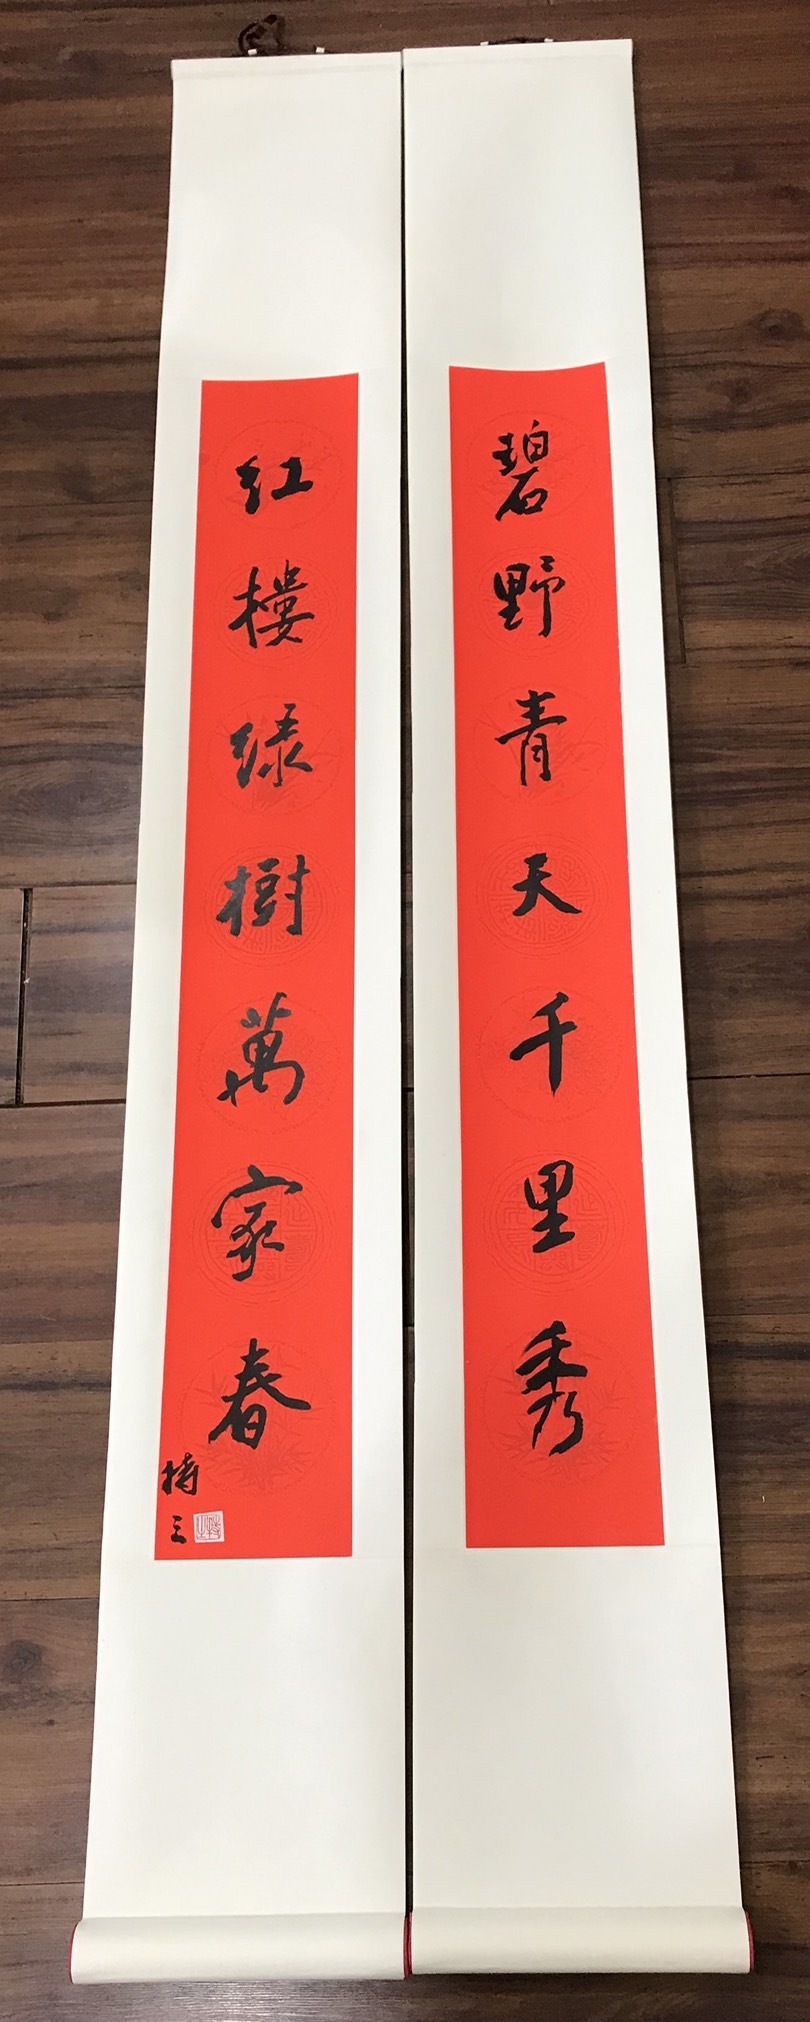 碧野青天千里秀
红樓绿樹萬家春
持三